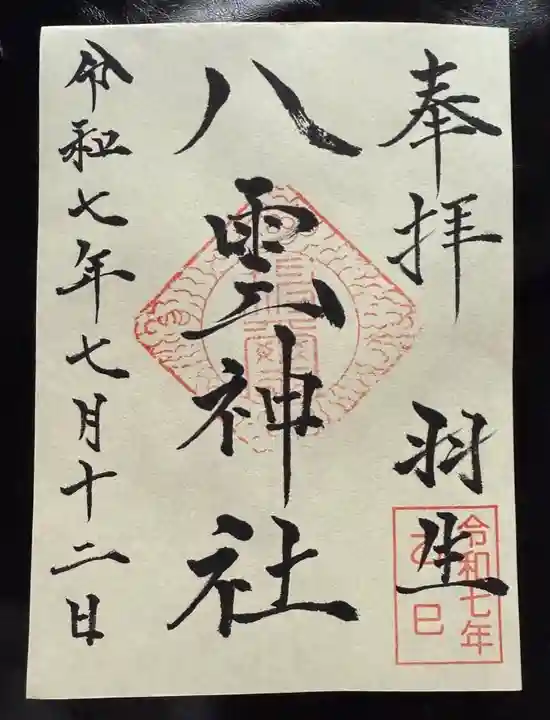 奉拝 羽生
令和七年
巳
八雲神社
令和七年七月十二日